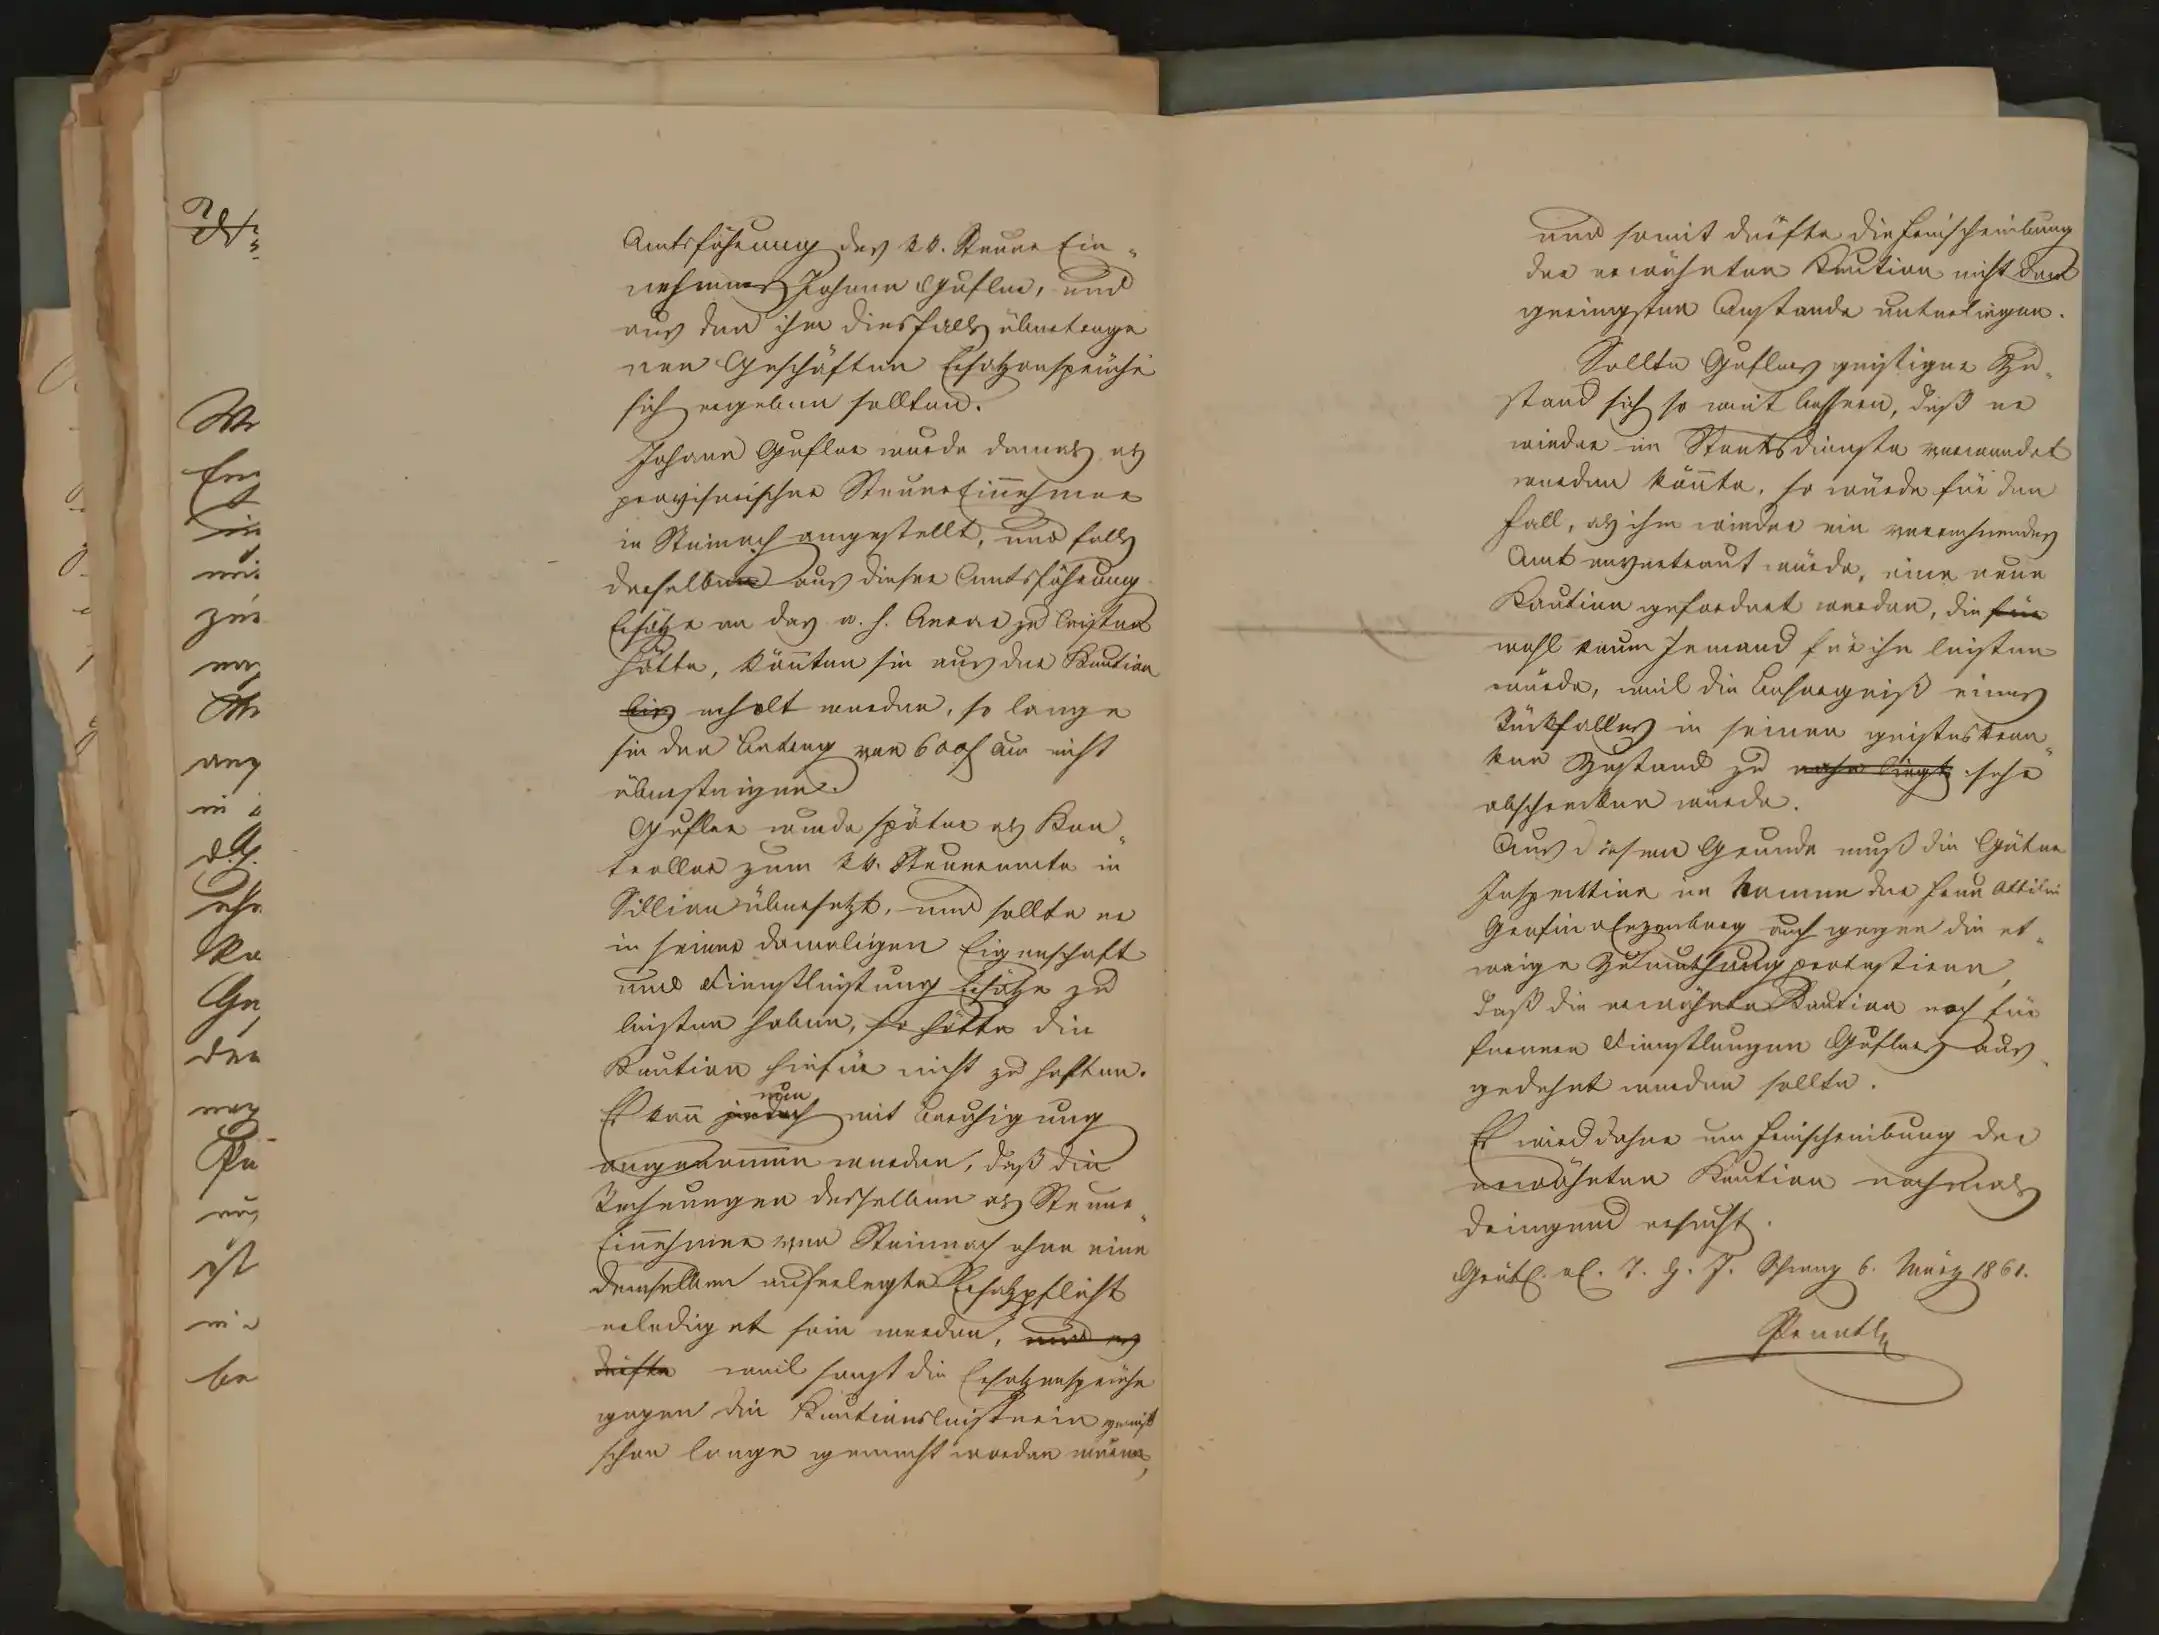 Amtsführung des kk. Steuer Ein-
nehmers Johann Gufler, und
aus den ihm diesfalls übertrage
nen Geschäften Ersatzansprüche
sich ergeben sollten.
Johann Gufler wurde damals als
provisorischer Steuereinnehmer
in Steinach angestellt, und falls
derselben aus dieser Amtsführung
Ersätze an das a. h. Aerar zu leisten
hätte, könnten sie aus der Kaution
bis erholt werden, so lange
sie den Betrag von 600 f nicht
übersteigen.
Gufler wurde später als Kon-
trollor zum kk. Steueramte in
Sillian übersetzt, und sollte er
in seiner damaligen Eigenschaft
und Dienstleistung Ersätze zu
leisten haben, so hätte die
Kaution hiefür nicht zu haften.
nun
Es kann jedoch mit Beruhigung
angenommen werden, daß die
Rechnungen desselben als Steuer-
Einnehmer von Steinach ohne eine
demselben auferlegte Ersatzpflicht
erlediget sein werden, und es
dürfte weil sonst die Ersatzansprüche
gegen die Kautionsleisterin gewiß
schon lange gemacht worden wären,
und somit dürfte die Freischreibung
der erwähnten Kaution nicht dem
geringsten Anstande unterliegen.
Sollte Guflers geistiger Zu-
stand sich so weit bessern, daß er
wieder im Staatsdienste verwendet
werden könnte, so würde für den
Fall, als ihm wieder ein verrechnendes
Amt anvertraut würde, eine neue
Kaution gefordert werden, die für
wohl kaum Jemand für ihn leisten
würde, weil die Besorgniß eines
Rückfalles in seinen geisteskran-
ken Zustand zu nahe liegt sehr
abschrecken würde.
Aus diesem Grunde muß die Güter
Inspektion im Namen der Frau Ottilia
Gräfin Enzenberg auch gegen die et-
waige Zumuthung protestiren,
daß die erwähnte Kaution noch für
fernere Dienstleistungen Guflers aus-
gedehnt werden sollte.
Es wird daher um Freischreibung der
erwähnten Kaution nochmals
dringend ersucht.
Schwaz 6. März 1861.